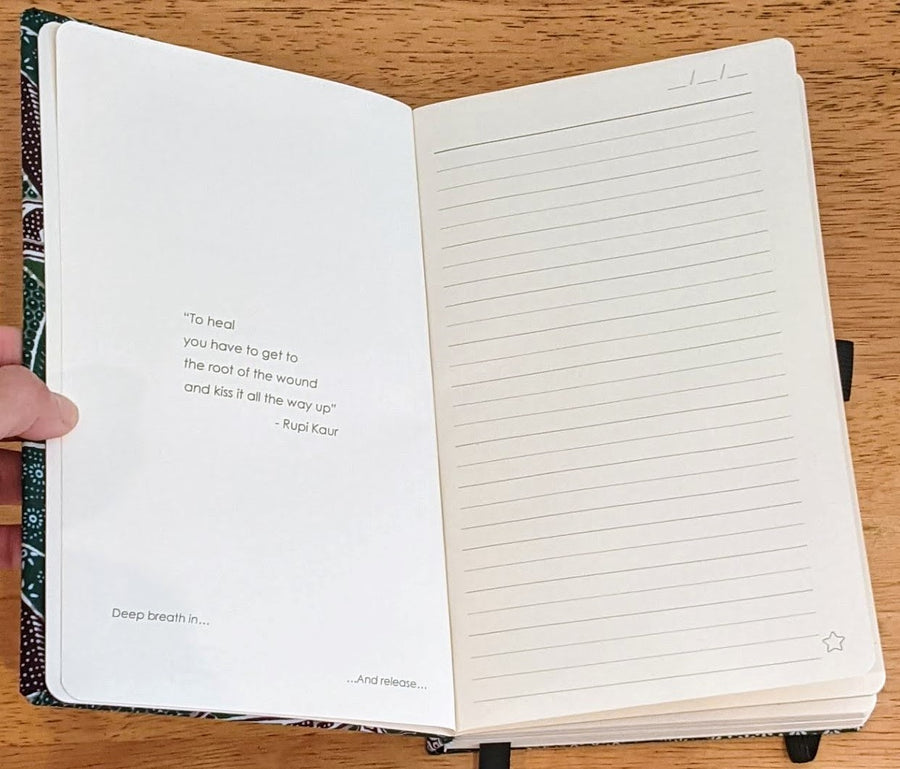 “To heal
you have to get to
the root of the wound
and kiss it all the way up”
- Rupi Kaur
Deep breath in...
...And release...
__/__/__